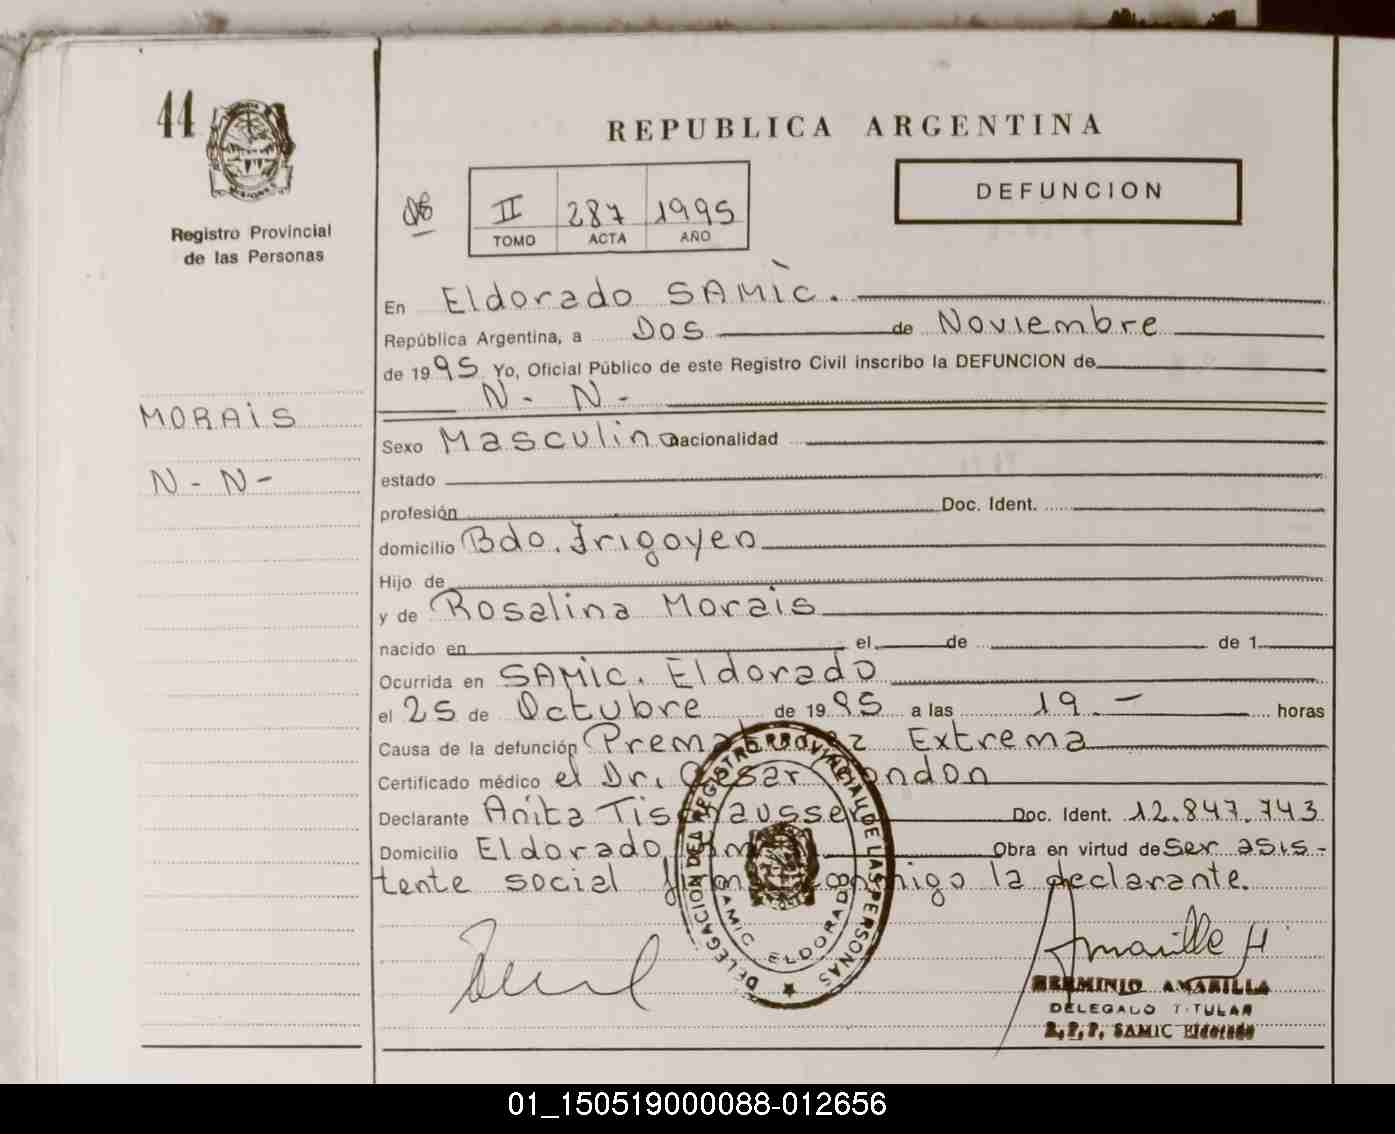 44
REPUBLICA ARGENTINA
DEFUNCION
Registro Provincial
de las Personas
II 287 1995
TOMO ACTA AÑO
En Eldorado SAMiC.
República Argentina, a Dos de Noviembre
de 1995 Yo, Oficial Público de este Registro Civil inscribo la DEFUNCION de
N. N.
MORAiS
N - N -
Sexo Masculino nacionalidad
estado
profesión Doc. Ident.
domicilio Bdo. Irigoyen
Hijo de
y de Rosalina Morais
nacido en el de de 1
Ocurrida en SAMiC. Eldorado
el 25 de Octubre de 1995 a las 19.- horas
Causa de la defunción Extrema
Certificado médico el Dr.
Declarante Anita Doc. Ident. 12.847.743
Domicilio Eldorado Obra en virtud de Ser asis-
tente social la declarante.
DELEGACION DEL REGISTRO PROVINCIAL DE LAS PERSONAS
SAMIC ELDORADO
Amarilla H
HERMINIO AMARILLA
DELEGADO TITULAR
R.P.P. SAMIC Eldorado
01_150519000088-012656